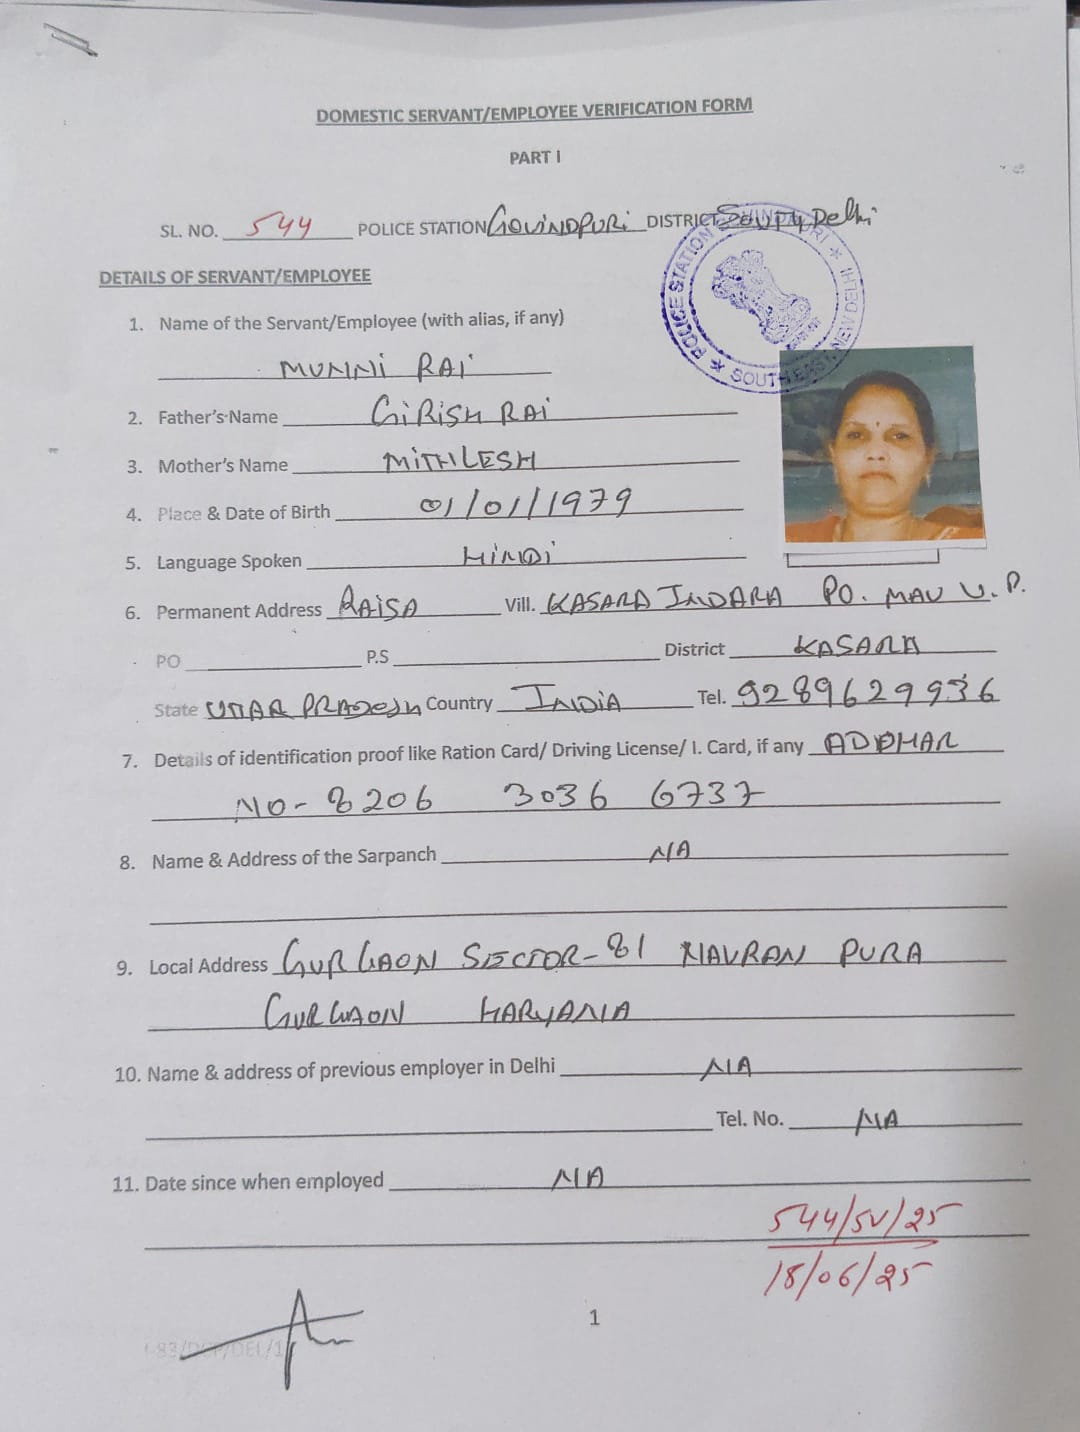 DOMESTIC SERVANT/EMPLOYEE VERIFICATION FORM
PART I
SL. NO. 544 POLICE STATION GOVINDPURI DISTRICT Delhi
POLICE STATION NEW DELHI SOUTH EAST
DETAILS OF SERVANT/EMPLOYEE
1. Name of the Servant/Employee (with alias, if any)
MUNNI RAI
2. Father's Name GIRISH RAI
3. Mother's Name MITHLESH
4. Place & Date of Birth 01/01/1979
5. Language Spoken HINDI
6. Permanent Address RAISA Vill. KASARA INDARA PO. MAU U.P.
PO P.S District KASARA
State UTTAR PRADESH Country INDIA Tel. 9289629936
7. Details of identification proof like Ration Card/ Driving License/ I. Card, if any ADDHAR
NO- 8206 3036 6737
8. Name & Address of the Sarpanch NA
9. Local Address GURGAON SECTOR-81 NAVRAN PURA
GURGAON HARYANA
10. Name & address of previous employer in Delhi NA
Tel. No. NA
11. Date since when employed NA
544/SV/25
18/06/25
1